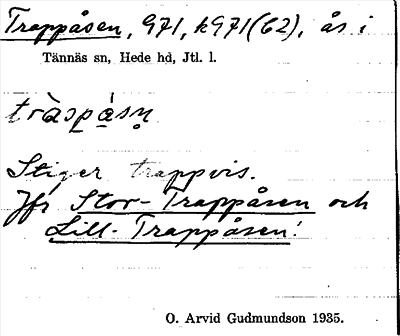 Trappåsen, 971, k971(C2), ås i
Tännäs sn, Hede hd, Jtl. l.
tràspásn̥
Stiger trappvis.
Jfr Stor-Trappåsen och
Lill-Trappåsen!
O. Arvid Gudmundson 1935.